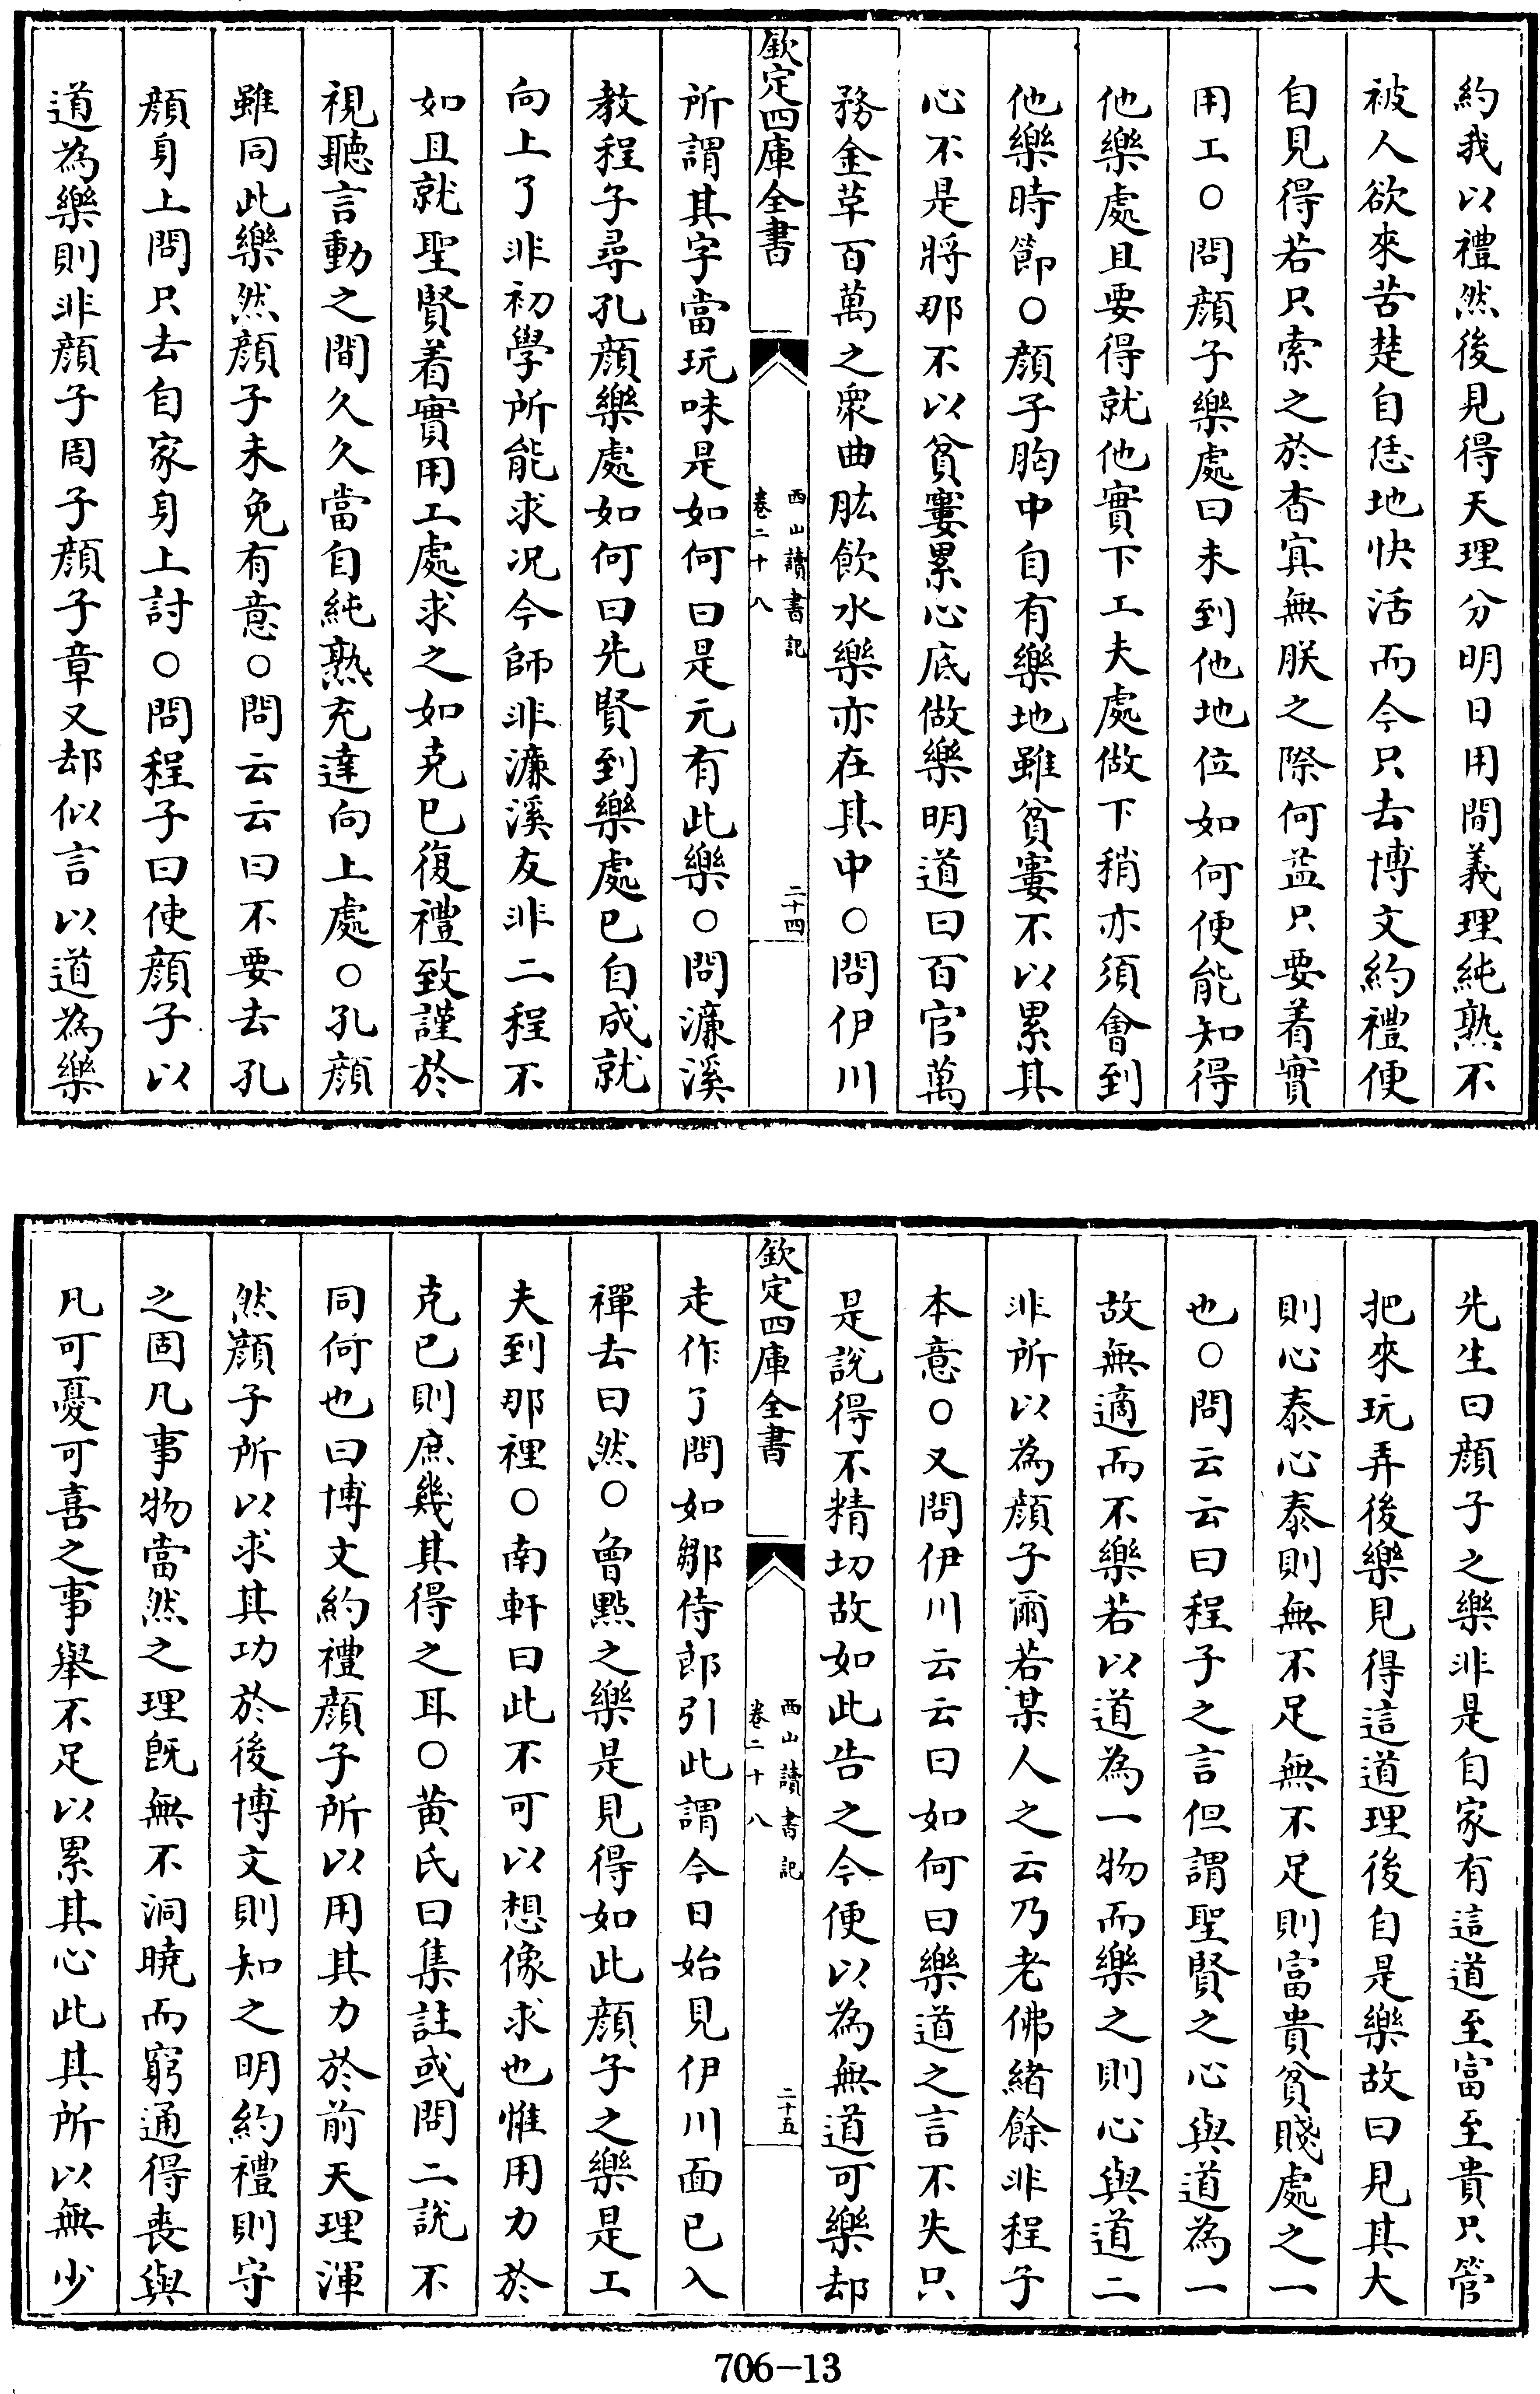 約我以禮然後見得天理分明日用間義理純熟不
被人欲來苦楚自恁地快活而今只去博文約禮便
自見得若只索之於杳冥無朕之際何益只要着實
用工○問顔子樂處曰未到他地位如何便能知得
他樂處且要得就他實下工夫處做下稍亦須會到
他樂時節○顔子胸中自有樂地雖貧窶不以累其
心不是將那不以貧窶累心底做樂明道曰百官萬
務金草百萬之衆曲肱飲水樂亦在其中○問伊川
欽定四庫全書
西山讀書記
卷二十八
二十四
所謂其字當玩味是如何曰是元有此樂○問濓溪
教程子尋孔顔樂處如何曰先賢到樂處已自成就
向上了非初學所能求况今師非濓溪友非二程不
如且就聖賢着實用工處求之如克已復禮致謹於
視聽言動之間久久當自純熟充達向上處○孔顔
雖同此樂然顔子未免有意○問云云曰不要去孔
顔身上問只去自家身上討○問程子曰使顔子以
道為樂則非顔子周子顔子章又却似言以道為樂
先生曰顔子之樂非是自家有這道至富至貴只管
把來玩弄後樂見得這道理後自是樂故曰見其大
則心泰心泰則無不足無不足則富貴貧賤處之一
也○問云云曰程子之言但謂聖賢之心與道為一
故無適而不樂若以道為一物而樂之則心與道二
非所以為顔子爾若某人之云乃老佛緒餘非程子
本意○又問伊川云云曰如何曰樂道之言不失只
是說得不精切故如此告之今便以為無道可樂却
欽定四庫全書
西山讀書記
卷二十八
二十五
走作了問如鄒侍郎引此謂今日始見伊川面已入
禪去曰然○曾點之樂是見得如此顔子之樂是工
夫到那裡○南軒曰此不可以想像求也惟用力於
克已則庶幾其得之耳○黄氏曰集註或問二說不
同何也曰博文約禮顔子所以用其力於前天理渾
然顔子所以求其功於後博文則知之明約禮則守
之固凡事物當然之理既無不洞曉而窮通得喪與
凡可憂可喜之事舉不足以累其心此其所以無少
706-13